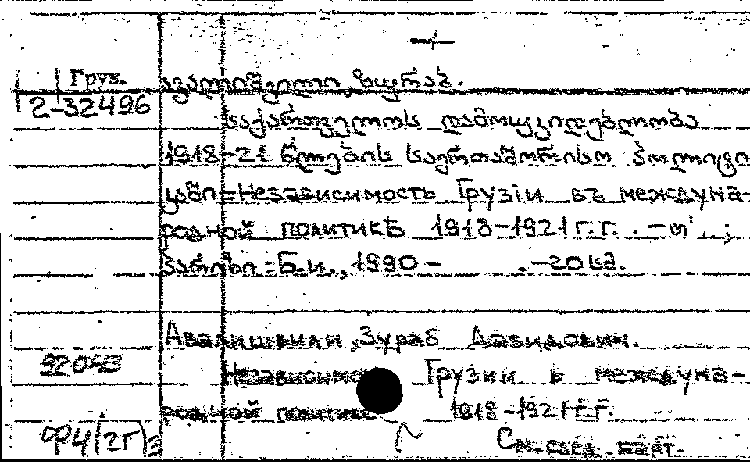 Груз.
2-32496
ავალიშვილი, ზურაბ.
საქართველოს დამოუკიდებლობა
1918-21 წლების საერთაშორისო პოლიტი
კაში=Независимость Грузiи въ междуна-
родной политикѣ 1918-1921 г.г. .-თ. ;
პარიზი:Б.и., 1990- .-20см.
Авалишвили, Зураб Давидович.
92043
Независимо Грузии в междуна-
родной политике 1918-1921 г.г.
ФЧ(2Г)
См. след. карт.